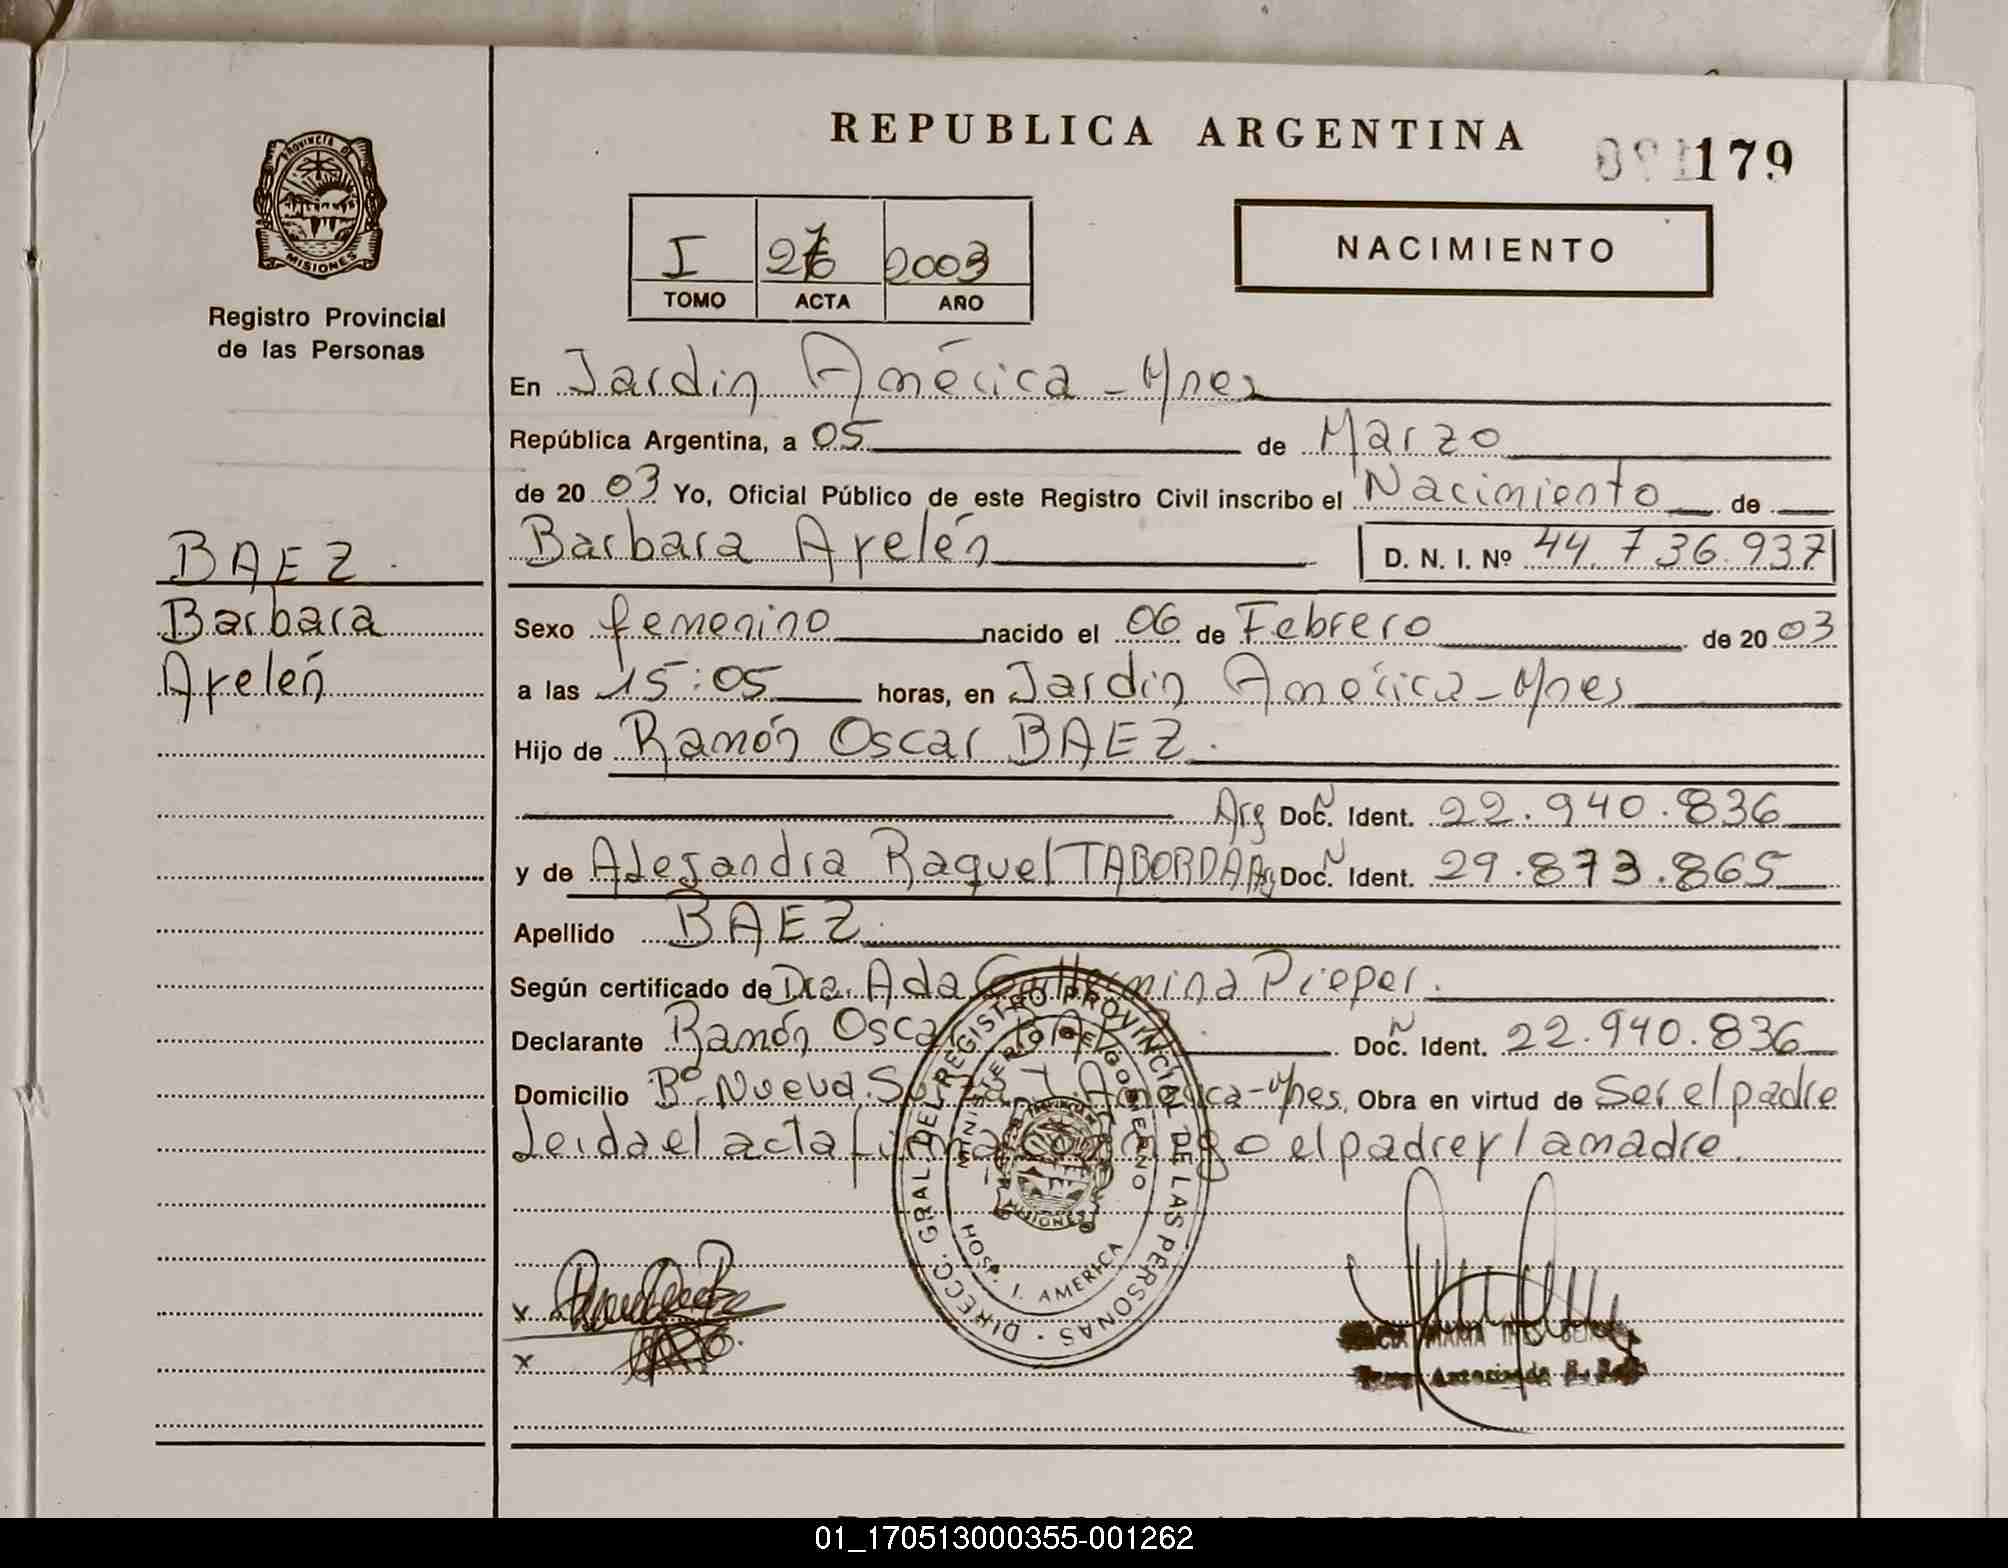 REPUBLICA ARGENTINA
179
PROVINCIA DE
MISIONES
Registro Provincial
de las Personas
I 2003
TOMO ACTA AÑO
NACIMIENTO
En Jardin América - Mnes
República Argentina, a 05 de Marzo
de 20 03 Yo, Oficial Público de este Registro Civil inscribo el Nacimiento de
Barbara Ayelén D. N. I. Nº 44.736.937
BAEZ
Barbara
Ayelén
Sexo femenino nacido el 06 de Febrero de 20 03
a las 15:05 horas, en Jardin América - Mnes
Hijo de Ramón Oscar BAEZ.
Arg Doc. Ident. 22.940.836
y de Alejandra Raquel TABORDA Arg Doc. Ident. 29.873.865
Apellido BAEZ.
Según certificado de Dra. Ada Guillermina Pieper.
Declarante Ramón Oscar BAEZ Doc. Ident. 22.940.836
Domicilio Bº Nueva J. América - Mnes. Obra en virtud de Ser el padre
Leida el acta firma conmigo el padre y la madre.
DIRECC. GRAL DEL REGISTRO PROVINCIAL DE LAS PERSONAS
MINISTERIO DE GOBIERNO
MISIONES
HOSP. J. AMERICA
x
x
MARIA INES
01_170513000355-001262